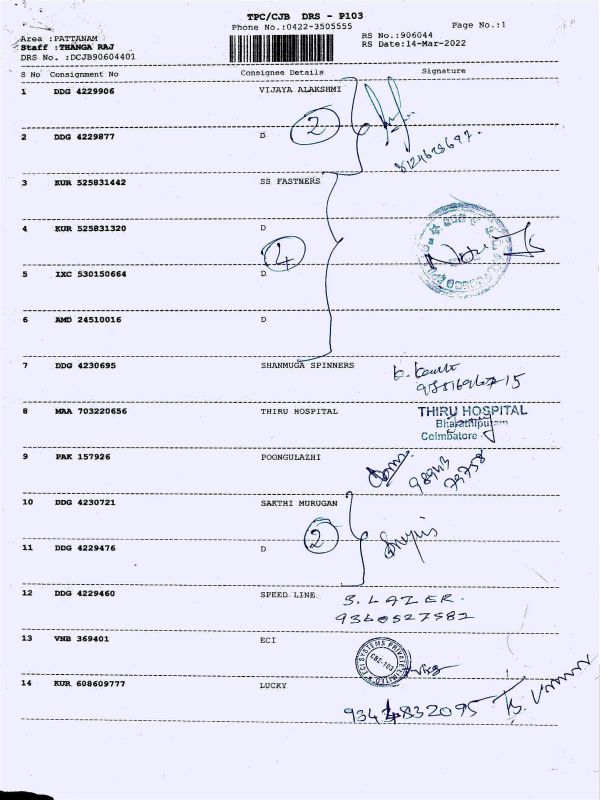 TPC/CJB DRS - P103
Phone No.:0422-3505555 Page No.:1
Area :PATTANAM RS No.:906044
Staff :THANGA RAJ RS Date:14-Mar-2022
DRS No. :DCJB90604401
S No Consignment No Consignee Details Signature
1 DDG 4229906 VIJAYA ALAKSHMI
2
8124628697.
2 DDG 4229877 D
3 KUR 525831442 SS FASTNERS
4 KUR 525831320 D
4
5 IXC 530150664 D
6 AMD 24510016 D
7 DDG 4230695 SHANMUGA SPINNERS
8 MAA 703220656 THIRU HOSPITAL THIRU HOSPITAL
Bharathipuram
Coimbatore
9 PAK 157926 POONGULAZHI
98943
79758
10 DDG 4230721 SAKTHI MURUGAN
2
11 DDG 4229476 D
12 DDG 4229460 SPEED LINE S. LAZER.
9360527582
13 VNB 369401 ECI
ECI SYSTEMS PRIVATE LIMITED
CBE-103
14 KUR 608609777 LUCKY
9344832095